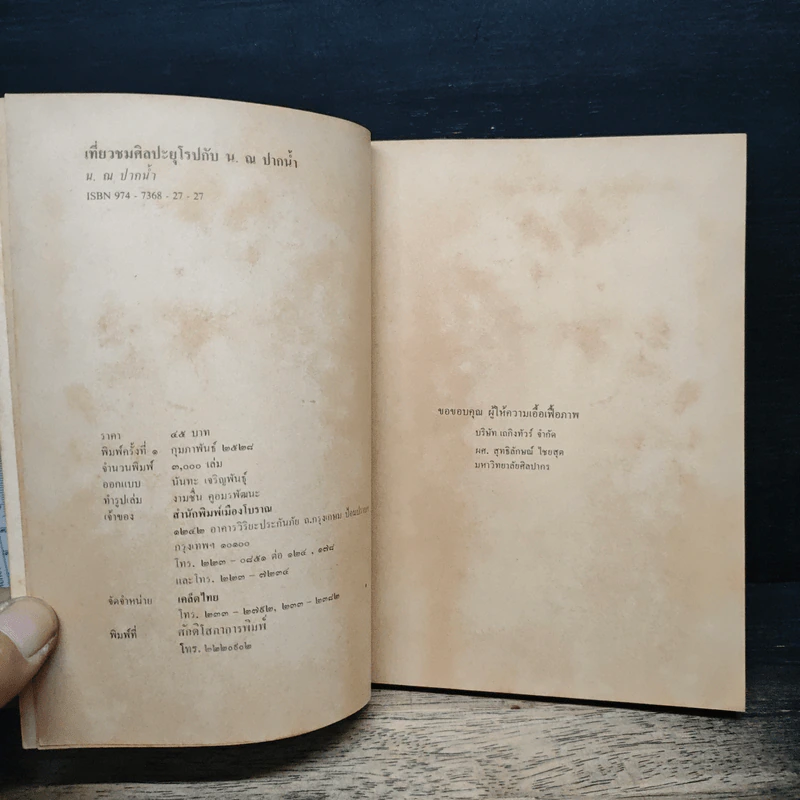 เที่ยวชมศิลปะยุโรปกับ น. ณ ปากน้ำ
น. ณ ปากน้ำ
ISBN 974 - 7368 - 27 - 27
ราคา ๔๕ บาท
พิมพ์ครั้งที่ ๑ กุมภาพันธ์ ๒๕๒๘
จำนวนพิมพ์ ๓,๐๐๐ เล่ม
ออกแบบ นันทะ เจริญพันธุ์
ทำรูปเล่ม งามชื่น คูอมรพัฒนะ
เจ้าของ สำนักพิมพ์เมืองโบราณ
๑๒๔๒ อาคารวิริยะประกันภัย ถ.กรุงเกษม
กรุงเทพฯ ๑๐๑๐๐
โทร. ๒๒๓ - ๐๘๕๑ ต่อ ๑๒๔ , ๑๗๘
และโทร. ๒๒๓ - ๗๒๓๔
จัดจำหน่าย เคล็ดไทย
โทร. ๒๓๓ - ๒๗๙๒, ๒๓๓ - ๒๓๘๒
พิมพ์ที่ ศักดิโสภาการพิมพ์
โทร. ๒๒๒๐๙๐๒
ขอขอบคุณ ผู้ให้ความเอื้อเฟื้อภาพ
บริษัท เถกิงทัวร์ จำกัด
ผศ. สุทธิลักษณ์ ไชยสุต
มหาวิทยาลัยศิลปากร